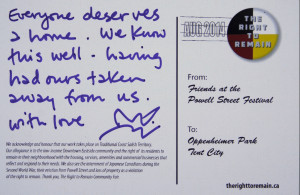 Everyone deserves
a home. We know
this well - having
had ours taken
away from us.
with love
We acknowledge and honour that our work takes place on Traditional Coast Salish Territory.
Our allegiance is to the low-income Downtown Eastside community and the right of its residents to
remain in their neighbourhood with the housing, services, amenities and commercial businesses that
reflect and respond to their needs. We also see the internment of Japanese Canadians during the
Second World War, their eviction from Powell Street and loss of property as a violation
of the right to remain. Thank you, The Right to Remain Community Fair
AUG 2014
THE
RIGHT
TO
REMAIN
From:
Friends at the
Powell Street Festival
To:
Oppenheimer Park
Tent City
therighttoremain.ca